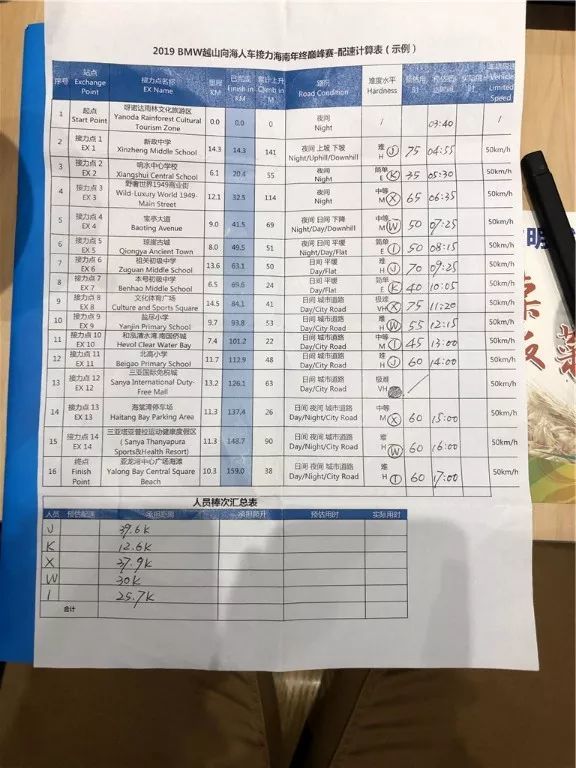 2019 BMW越山向海人车接力海南年终巅峰赛-配速计算表（示例）
序号 站点 Exchange Point 接力点名称 EX Name 里程 KM 已完成 Finish in KM 累计上升 Climb in M 路况 Road Condition 难度水平 Hardness 预估用时 预估达到时间 实际用时 车辆限速 Vehicle Limited Speed
1 起点 Start Point 呀诺达雨林文化旅游区 Yanoda Rainforest Cultural Tourism Zone 0.0 0.0 0 夜间 Night / 03:40 /
2 接力点 1 EX 1 新政中学 Xinzheng Middle School 14.3 14.3 141 夜间 上坡 下坡 Night/Uphill/Downhill 难 H J 75 04:55 50km/h
3 接力点 2 EX 2 响水中心学校 Xiangshui Central School 6.1 20.4 55 夜间 Night 简单 E K 35 05:30 50km/h
4 接力点 3 EX 3 野奢世界1949商业街 Wild-Luxury World 1949-Main Street 12.1 32.5 114 夜间 Night 中等 M X 65 06:35 50km/h
5 接力点 4 EX 4 宝亭大道 Baoting Avenue 9.0 41.5 69 夜间 日间 下降 Night/Day/Downhill 中等 M W 50 07:25 50km/h
6 接力点 5 EX 5 琼崖古城 Qiongya Ancient Town 8.0 49.5 51 夜间 日间 平缓 Night/Day/Flat 简单 E I 50 08:15 50km/h
7 接力点 6 EX 6 祖关初级中学 Zuguan Middle School 13.6 63.1 50 日间 平缓 Day/Flat 难 H J 70 09:25 50km/h
8 接力点 7 EX 7 本号初级中学 Benhao Middle School 6.5 69.6 24 日间 平缓 Day/Flat 简单 E K 40 10:05 50km/h
9 接力点 8 EX 8 文化体育广场 Culture and Sports Square 14.5 84.1 41 日间 城市道路 Day/City Road 极难 VH X 75 11:20 50km/h
10 接力点 9 EX 9 盐尽小学 Yanjin Primary School 9.7 93.8 53 日间 城市道路 Day/City Road 难 H W 55 12:15 50km/h
11 接力点 10 EX 10 和泓清水湾 南国侨城 Hevol Clear Water Bay 7.4 101.2 22 日间 城市道路 Day/City Road 中等 M I 45 13:00 50km/h
12 接力点 11 EX 11 北高小学 Beigao Primary School 11.7 112.9 48 日间 城市道路 Day/City Road 难 H J 60 14:00 50km/h
13 接力点 12 EX 12 三亚国际免税城 Sanya International Duty-Free Mall 13.2 126.1 63 日间 城市道路 Day/City Road 极难 VH 50km/h
14 接力点 13 EX 13 海棠湾停车场 Haitang Bay Parking Area 11.3 137.4 26 日间 夜间 城市道路 Day/Night/City Road 中等 M X 60 15:00 50km/h
15 接力点 14 EX 14 三亚塔亚普拉运动健康度假区 ( Sanya Thanyapura Sports&Health Resort) 11.3 148.7 90 日间 夜间 城市道路 Day/Night/City Road 难 H W 60 16:00 50km/h
16 终点 Finish Point 亚龙湾中心广场海滩 Yalong Bay Central Square Beach 10.3 159.0 38 日间 夜间 城市道路 Day/Night/City Road 难 H I 60 17:00 50km/h
人员棒次汇总表
人员 预估配速 承担距离 承担爬升 预估用时 实际用时
J 39.6K
K 12.6K
X 37.9K
W 30K
I 25.7K
合计